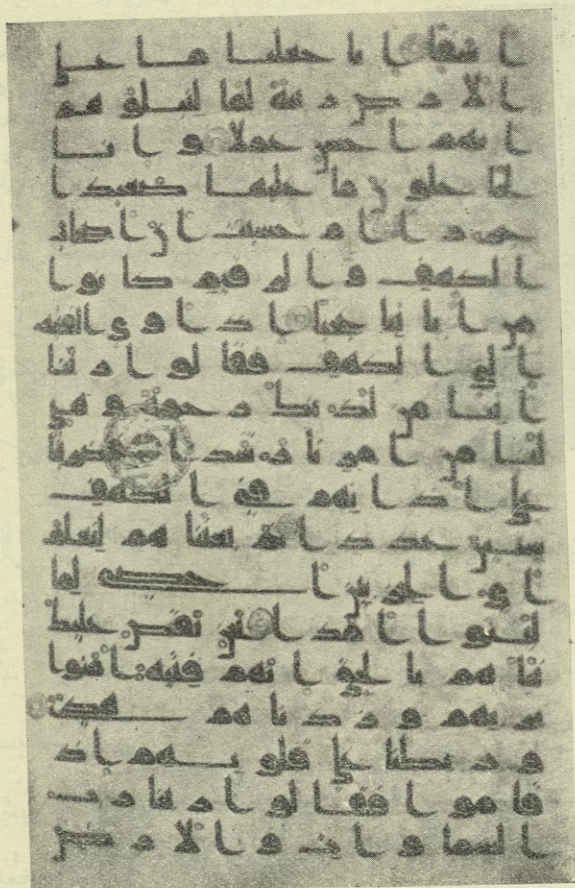 اسفا انا جعلنا ما على
الارض زينة لها لنبلوهم
ايهم احسن عملا وانا
لجعلون ما عليها صعيدا
جرزا ام حسبت ان اصحب
الكهف والرقيم كانوا
من ايتنا عجبا اذ اوى الفتية
الى الكهف فقالوا ربنا
اتنا من لدنك رحمة وهيى
لنا من امرنا رشدا فضربنا
على اذنهم في الكهف
سنين عددا ثم بعثنهم لنعلم
اي الحزبين احصى لما
لبثوا امدا نحن نقص عليك
نباهم بالحق انهم فتية امنوا
بربهم وزدنهم هدى
وربطنا على قلوبهم اذ
قاموا فقالوا ربنا رب
السموت والارض